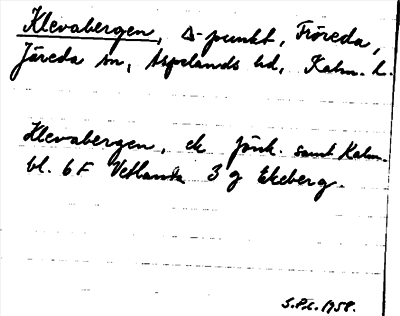 Klevabergen, Δ-punkt, Fröreda,
Järeda sn, Aspelands hd, Kalm. l.
Klevabergen, ek Jönk. samt Kalm.
bl. 6 F Vetlanda 3 g Ekeberg.
1958.